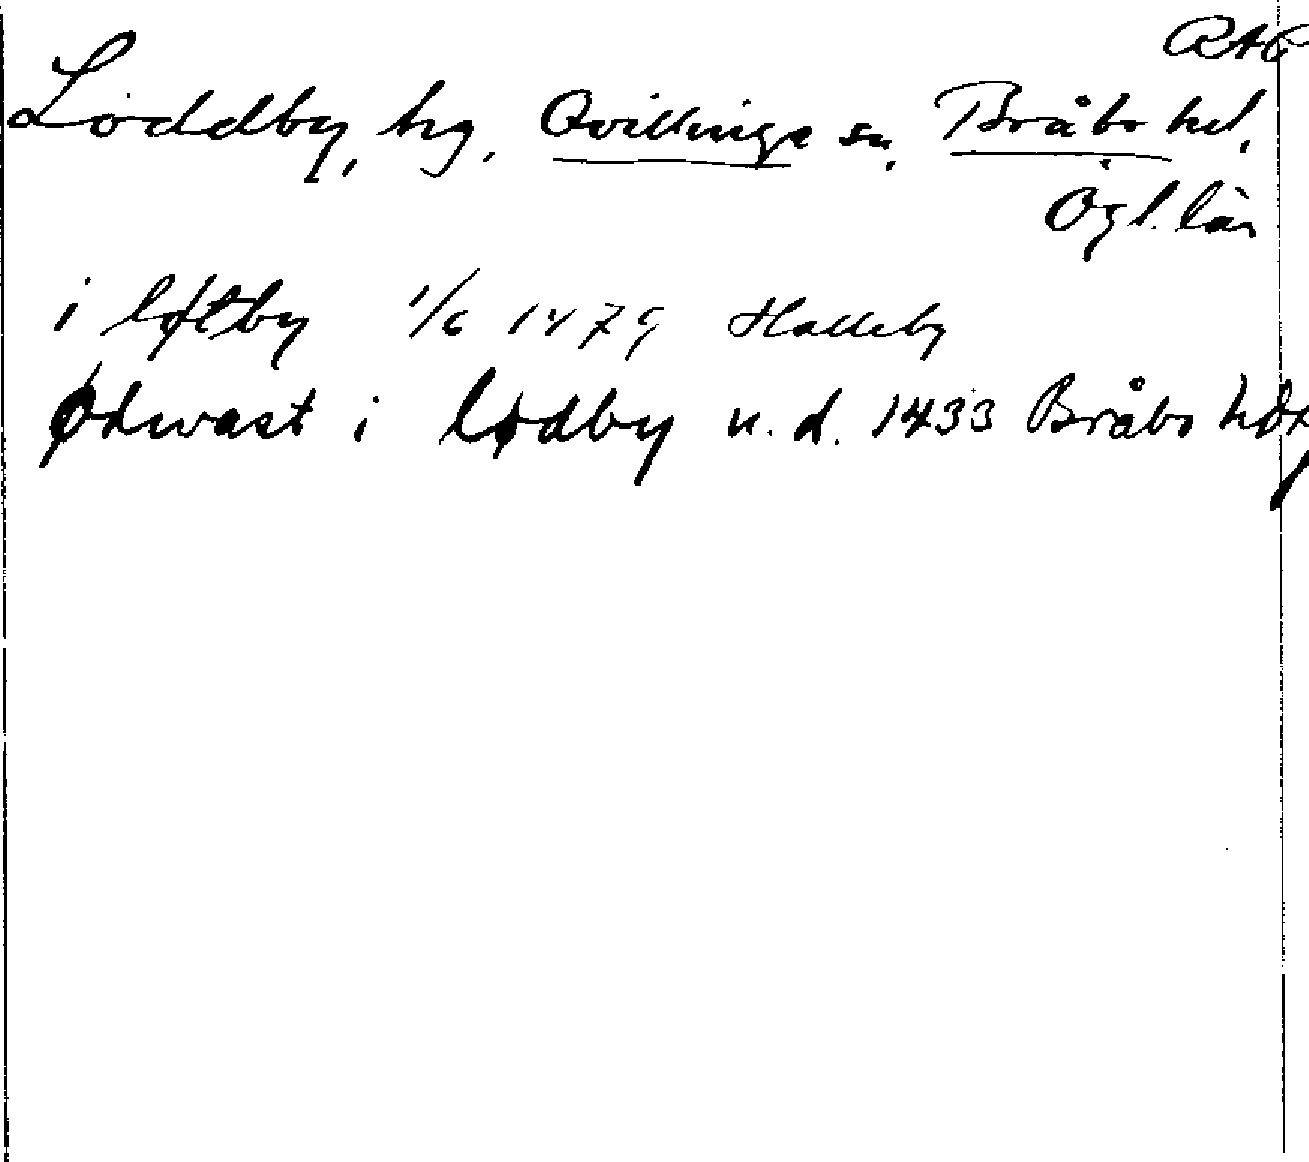 RAP
Loddby, hg, Qvillinge sn, Bråbo hd,
Ögl. län
i løtby 1/6 1479 Halleby
Ødwast i lødby u. d. 1433 Bråbo